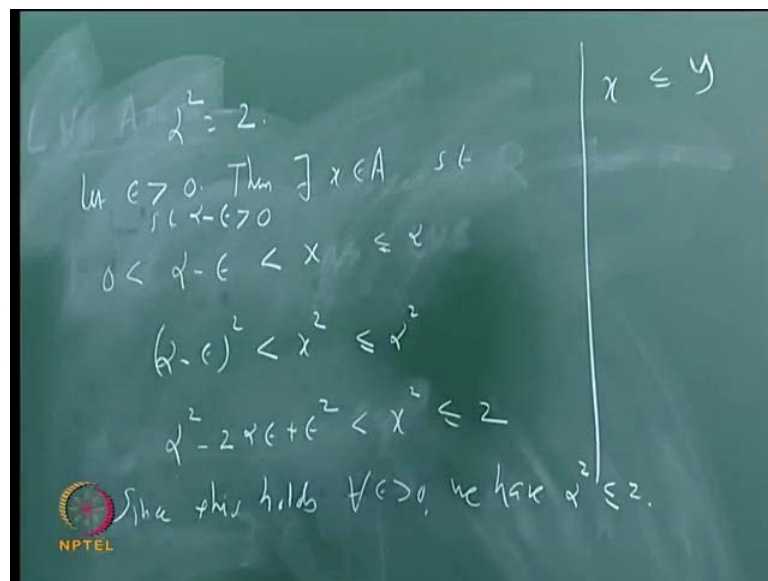 α² = 2.
Let ϵ > 0. Then ∃ x ∈ A st
st α - ϵ > 0
0 < α - ϵ < x ≤ α
(α - ϵ)² < x² ≤ α²
α² - 2αϵ + ϵ² < x² ≤ 2
Since this holds ∀ ϵ > 0, we have α² ≤ 2.
x ≤ y
NPTEL